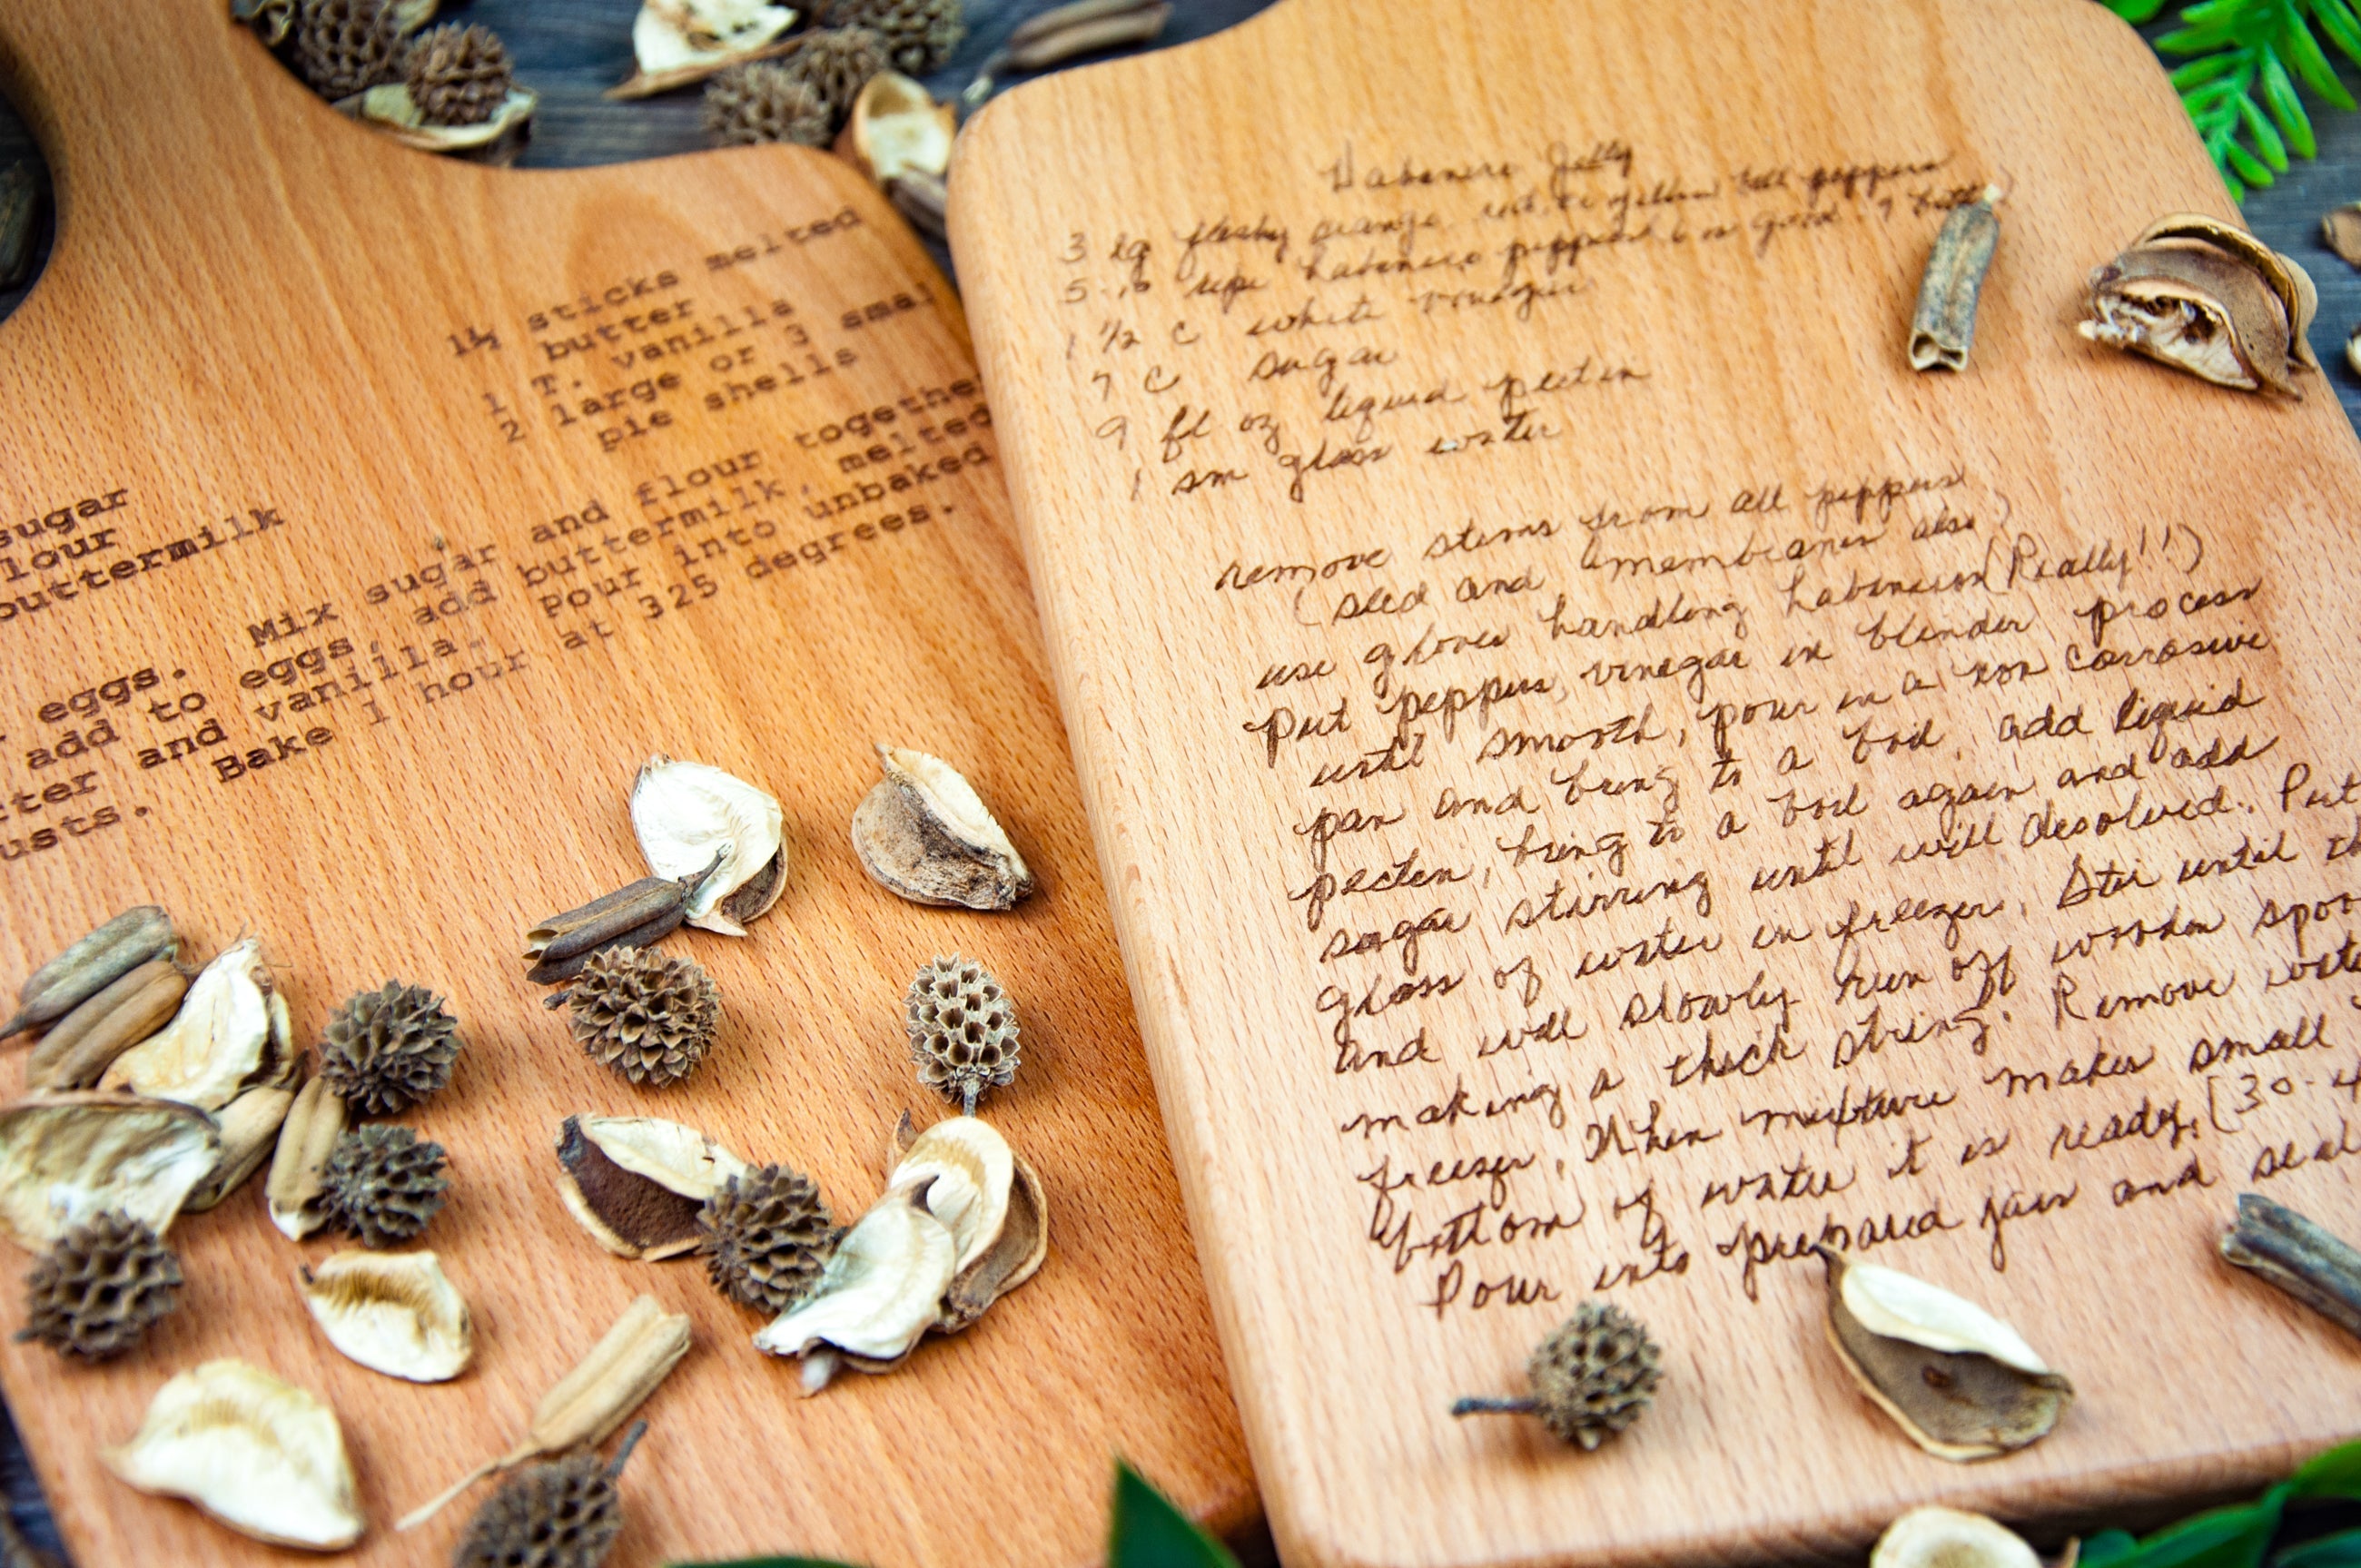 1½ sticks melted
butter
1 T. vanilla
2 large or 3 smal
pie shells
sugar
lour
buttermilk
eggs. Mix sugar and flour togethe
add to eggs, add buttermilk, melted
tter and vanilla. Pour into unbaked
usts. Bake 1 hour at 325 degrees.
Habenero Jelly
3 lg fleshy orange, red, or yellow bell peppers
5-10 ripe habenero peppers 6 is good. 9
1 1/2 c white vinegar
7 c sugar
9 fl oz liquid pectin
1 sm glass water
remove stems from all peppers
(seed and membranes also)
use gloves handling habeneros (Really!!)
Put peppers, vinegar in blender process
until smooth, pour in a non corrosive
pan and bring to a boil, add liquid
pectin, bring to a boil again and add
sugar stirring until well desolved. Put
glass of water in freezer. Stir until th
and will slowly run off wooden spoo
making a thick string. Remove wate
freezer, When mixture makes small
bottom of water it is ready. (30-4
Pour into prepared jars and seal